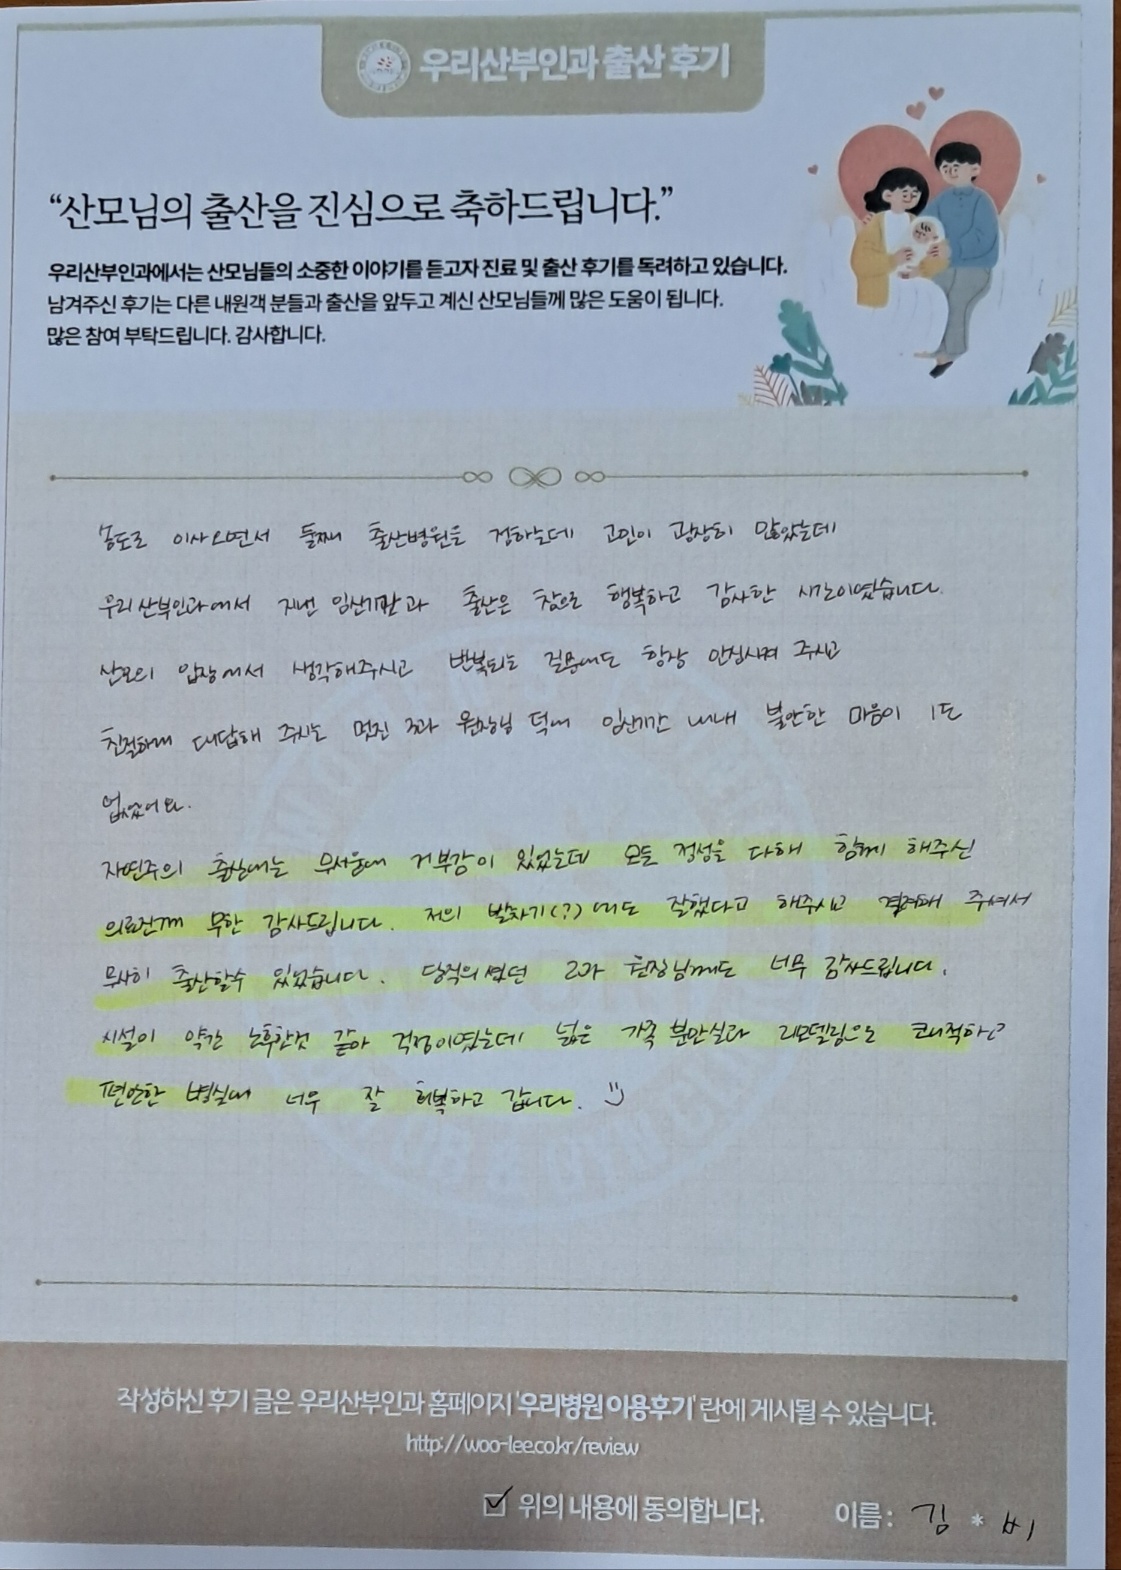 우리산부인과 출산 후기
“산모님의 출산을 진심으로 축하드립니다.”
우리산부인과에서는 산모님들의 소중한 이야기를 듣고자 진료 및 출산 후기를 독려하고 있습니다.
남겨주신 후기는 다른 내원객 분들과 출산을 앞두고 계신 산모님들께 많은 도움이 됩니다.
많은 참여 부탁드립니다. 감사합니다.
송도로 이사오면서 둘째 출산병원을 정하는데 고민이 굉장히 많았는데
우리산부인과에서 지낸 임신기간과 출산은 참으로 행복하고 감사한 시간이였습니다.
산모의 입장에서 생각해주시고 반복되는 질문에도 항상 안심시켜 주시고
친절하게 대답해 주시는 멋진 3과 원장님 덕에 임신기간 내내 불안한 마음이 1도
없었어요.
자연주의 출산에는 무서움에 거부감이 있었는데 모든 정성을 다해 함께 해주신
의료진께 무한 감사드립니다. 저의 발차기(?)에도 잘했다고 해주시고 격려해 주셔서
무사히 출산할수 있었습니다. 당직의셨던 2과 원장님께도 너무 감사드립니다.
시설이 약간 노후한것 같아 걱정이였는데 넓은 가족 분만실과 리모델링으로 쾌적하고
편안한 병실에 너무 잘 회복하고 갑니다.
작성하신 후기 글은 우리산부인과 홈페이지 '우리병원 이용후기' 란에 게시될 수 있습니다.
http://woo-lee.co.kr/review
위의 내용에 동의합니다. 이름 : 김 * 비